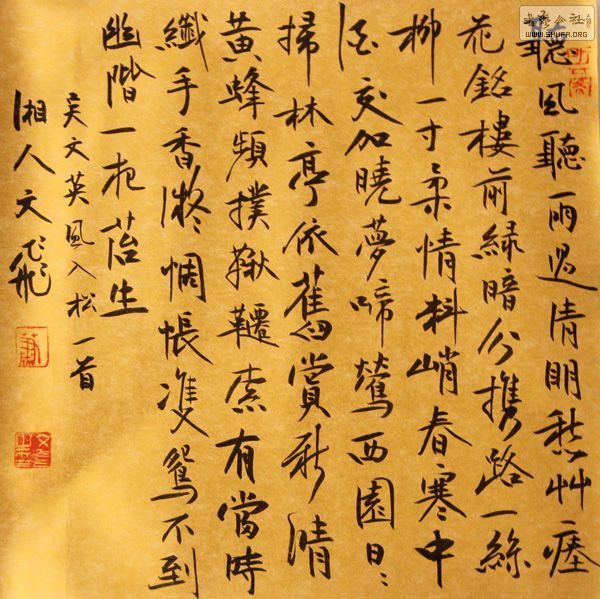 書藝公社
WWW.SHUFA.ORG
聽風聽雨過清明愁艸瘞
花銘樓前綠暗分攜路一絲
柳一寸柔情料峭春寒中
酒交加曉夢啼鶯西園日〻
掃林亭依舊賞新晴
黃蜂頻撲鞦韆索有當時
纖手香凝惆悵雙鴛不到
幽階一夜苔生
吳文英風入松一首
湘人文飛